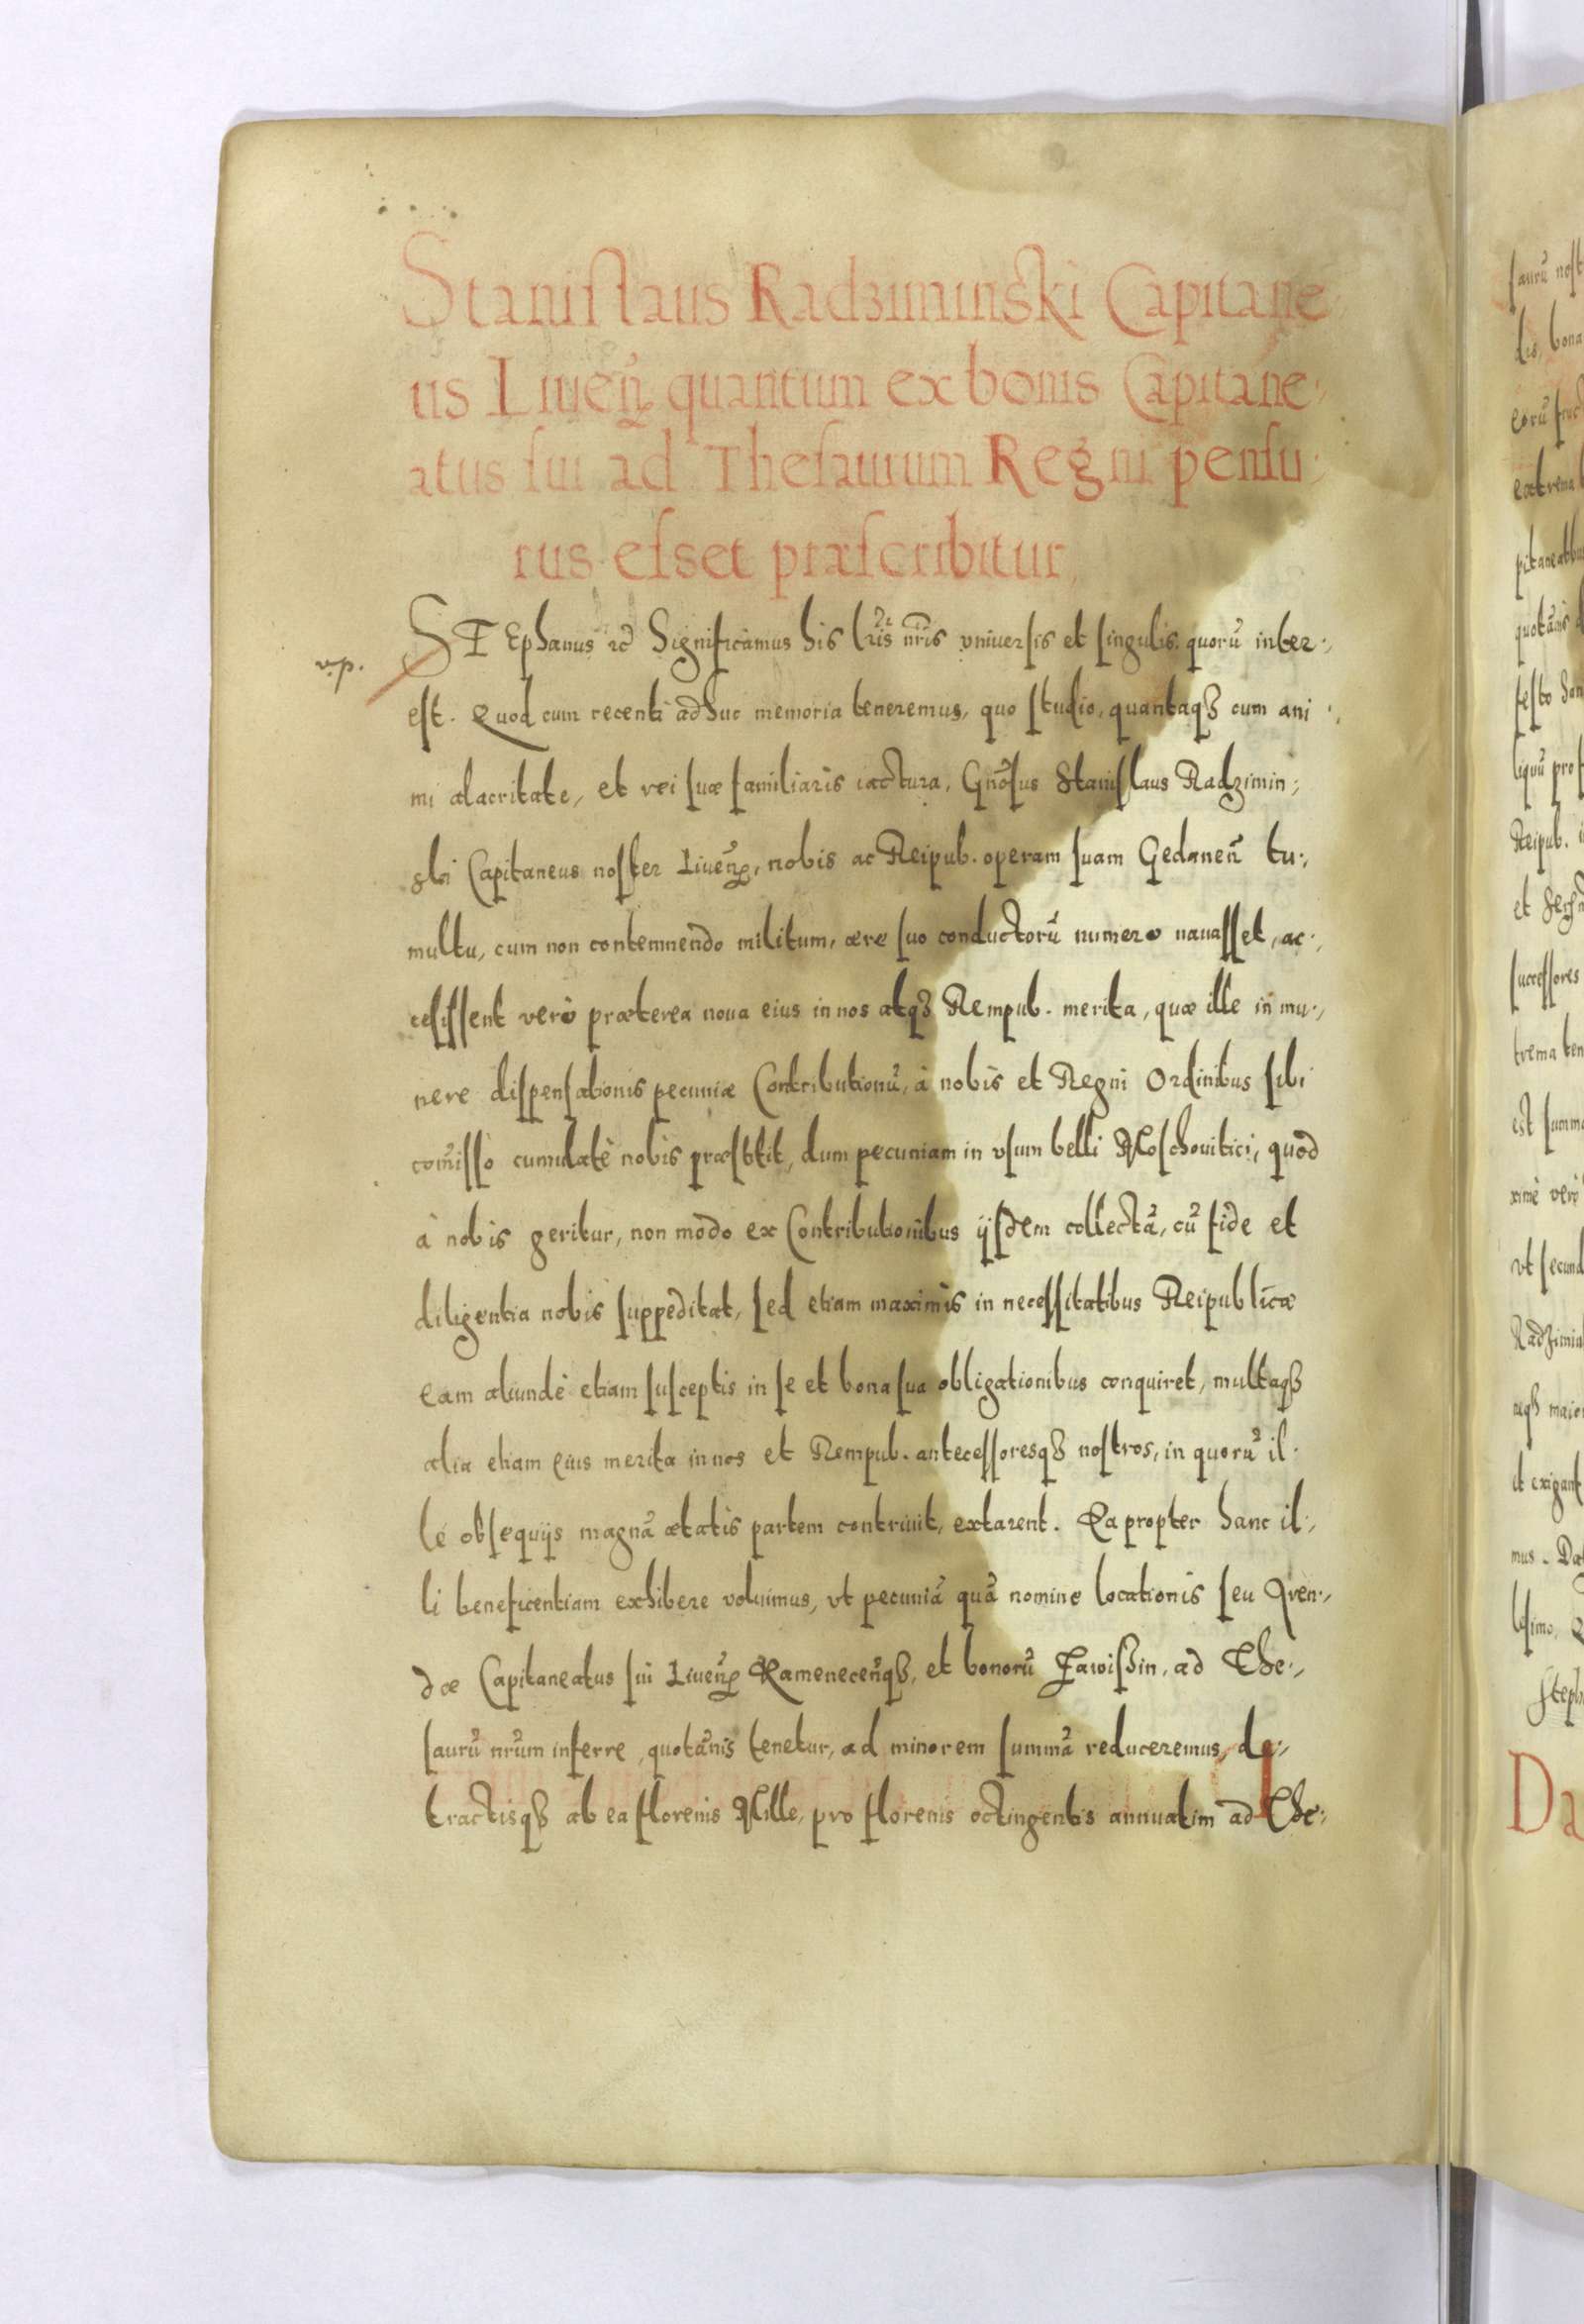 Stanislaus Radziminski Capitane
us Liuen̄ quantum ex bonis Capitane,
atus sui ad Thesaurum Regni pensu,
rus esset præscribitur,
v.p.
STEphanus ꝛc̄ Significamus his lr̄is nr̄is vniuersis et singulis quorū inter,
est. Quod cum recenti adhuc memoria teneremus, quo studio, quantaqȝ cum ani,
mi alacritate, et rei suæ familiaris iactura, Gnōsus Stanislaus Radzimin,
ski Capitaneus noster Liuen̄, nobis ac Reipub. operam suam Gedanen̄ tu,
multu, cum non contemnendo militum, ære suo conductorū numero nauasset, ac,
cesissent verò præterea noua eius in nos atqȝ Rempub. merita, quæ ille in mu,
nere dispensationis pecuniæ Contributionū, à nobis et Regni Ordinibus sibi
com̄isso cumulatè nobis præstitit, dum pecuniam in vsum belli Moschouitici, quod
à nobis geritur, non modo ex Contributionibus ijsdem collectā, cū fide et
diligentia nobis suppeditat, sed etiam maximis in necessitatibus Reipublicæ
eam aliundè etiam susceptis in se et bona sua obligationibus conquiret, multaqȝ
alia etiam eius merita in nos et Rempub. antecessoresqȝ nostros, in quorū il
lé obsequijs magnā ætatis partem contriuit, extarent. Ea propter hanc il,
li beneficentiam exhibere voluimus, vt pecuniā quā nomine locationis seu Aren,
dæ Capitaneatus sui Liuen̄ Kamenecen̄qȝ, et bonorū Jawißin, ad The,
saurū nr̄um inferre, quotānis tenetur, ad minorem summā reduceremus, de,
tractisqȝ ab ea florenis Mille, pro florenis octingentis annuatim ad The,